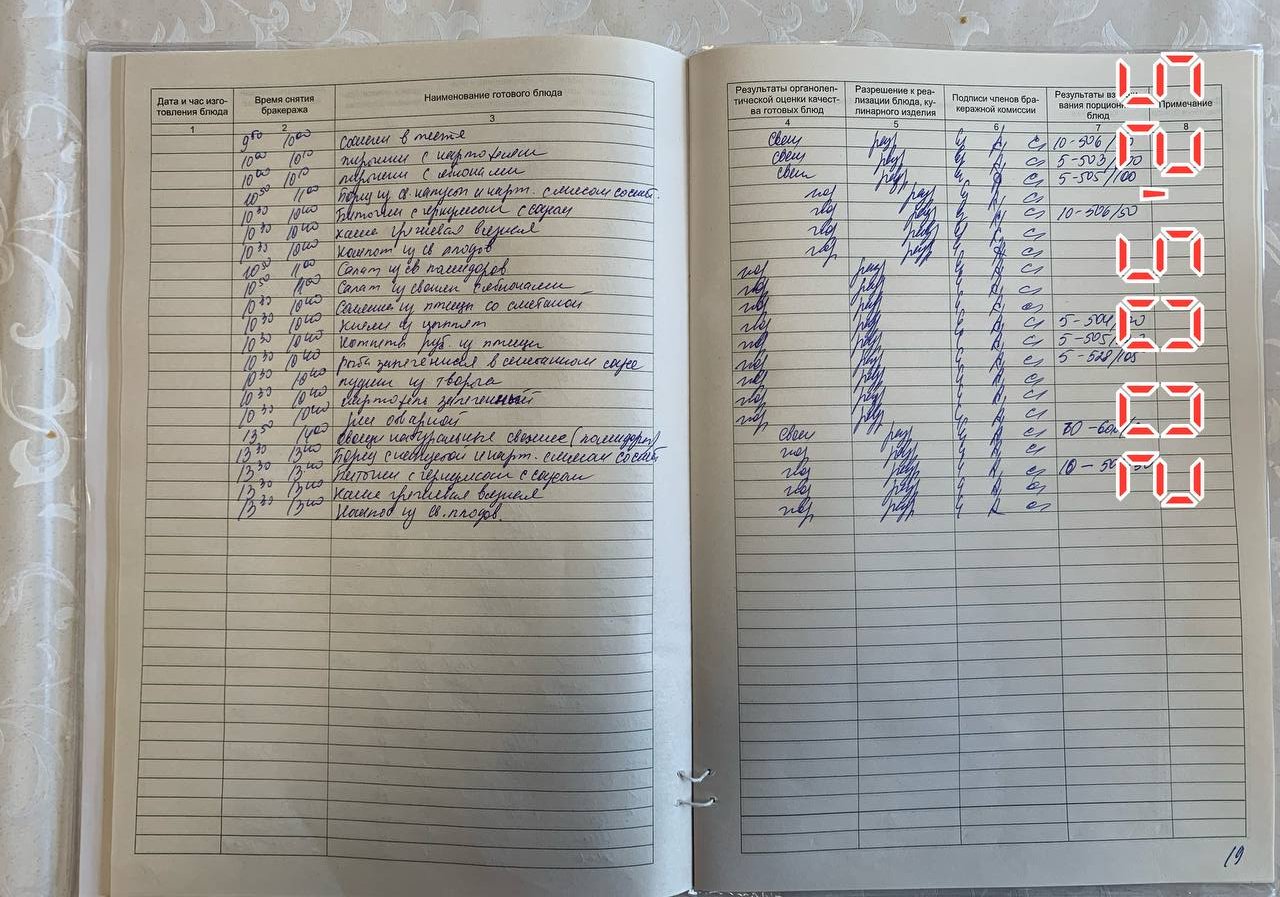 Дата и час изго-
товления блюда
Время снятия
бракеража
Наименование готового блюда
1 2 3
9⁵⁰ 10⁰⁰ Сосиски в тесте
10⁰⁰ 10¹⁰ пирожки с картофелем
10⁰⁰ 10¹⁰ пирожки с яблоками
10⁵⁰ 11⁰⁰ Борщ из св. капуст и карт. с мясом со смет.
10³⁰ 10⁴⁰ Биточки с геркулесом с соусом
10³⁰ 10⁴⁰ каша гречневая вязкая
10³⁰ 10⁴⁰ Компот из св плодов
10⁵⁰ 11⁰⁰ Салат из св помидоров
10⁵⁰ 11⁰⁰ Салат из свеклы с яблоками
10³⁰ 10⁴⁰ из птицы со сметаной
10³⁰ 10⁴⁰ из цыплят
10³⁰ 10⁴⁰ Котлета руб. из птицы
10³⁰ 10⁴⁰ рыба запеченная в сметанном соусе
10³⁰ 10⁴⁰ пудинг из творога
10³⁰ 10⁴⁰ картофель запеченный
10³⁰ 10⁴⁰ рис отварной
13⁵⁰ 14⁰⁰ овощи натуральные свежие (помидоры)
13³⁰ 13⁴⁰ Борщ с капустой и карт. с мясом со смет
13³⁰ 13⁴⁰ Биточки с геркулесом с соусом
13³⁰ 13⁴⁰ Каша гречневая вязкая
13³⁰ 13⁴⁰ Компот из св. плодов.
Результаты органолеп-
тической оценки качест-
ва готовых блюд
Разрешение к реа-
лизации блюда, ку-
линарного изделия
Подписи членов бра-
керажной комиссии
Результаты
вания порцион
блюд
Примечание
4 5 6 7 8
свеш разр 10-506/
свеш разр 5-503/
свеш разр 5-505/100
гор разр
гор разр 10-506/50
гор разр
гор разр
гор разр
гор разр
гор разр
гор разр 5-504/
гор разр 5-505/
гор разр 5-528/105
гор разр
гор разр
гор разр
свеш разр
гор разр
гор разр
гор разр
гор разр
19
2025'05